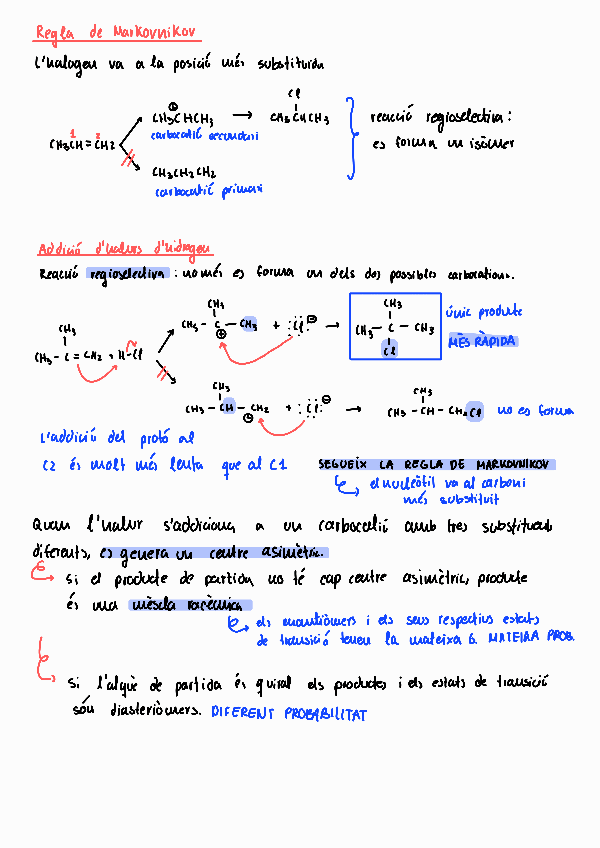 Regla de Markovnikov
L'halogen va a la posició més substituïda
Cl
CH3CHCH3 → CH3CHCH3
carbocatió secundari
reacció regioselectiva:
es forma un isòmer
1 2
CH3CH=CH2
CH3CH2CH2
carbocatió primari
Addició d'halurs d'hidrogen
Reacció regioselectiva: només es forma un dels dos possibles carbocations.
CH3
CH3 - C - CH3 + :Cl: ⊖ →
⊕
CH3
CH3 - C - CH3
Cl
únic producte
MÉS RÀPIDA
CH3
CH3 - C = CH2 + H - Cl
CH3
CH3 - CH - CH2 + :Cl: ⊖ →
CH3
CH3 - CH - CH2Cl
no es forma
L'addició del protó al
C2 és molt més lenta que al C1
SEGUEIX LA REGLA DE MARKOVNIKOV
el nucleòfil va al carboni
més substituït
Quan l'halur s'addiciona a un carbocatió amb tres substituents
diferents, es genera un centre asimètric.
si el producte de partida no té cap centre asimètric, producte
és una mescla racèmica
els enantiòmers i els seus respectius estats
de transició tenen la mateixa G. MATEIXA PROB.
si l'alquè de partida és quiral els productes i els estats de transició
són diasteriòmers. DIFERENT PROBABILITAT